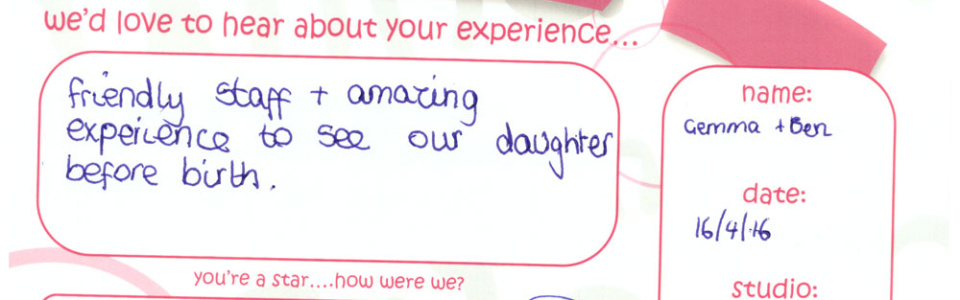 we'd love to hear about your experience...
friendly staff + amazing
experience to see our daughter
before birth.
name:
Gemma + Ben
date:
16/4/16
you're a star....how were we?
studio: